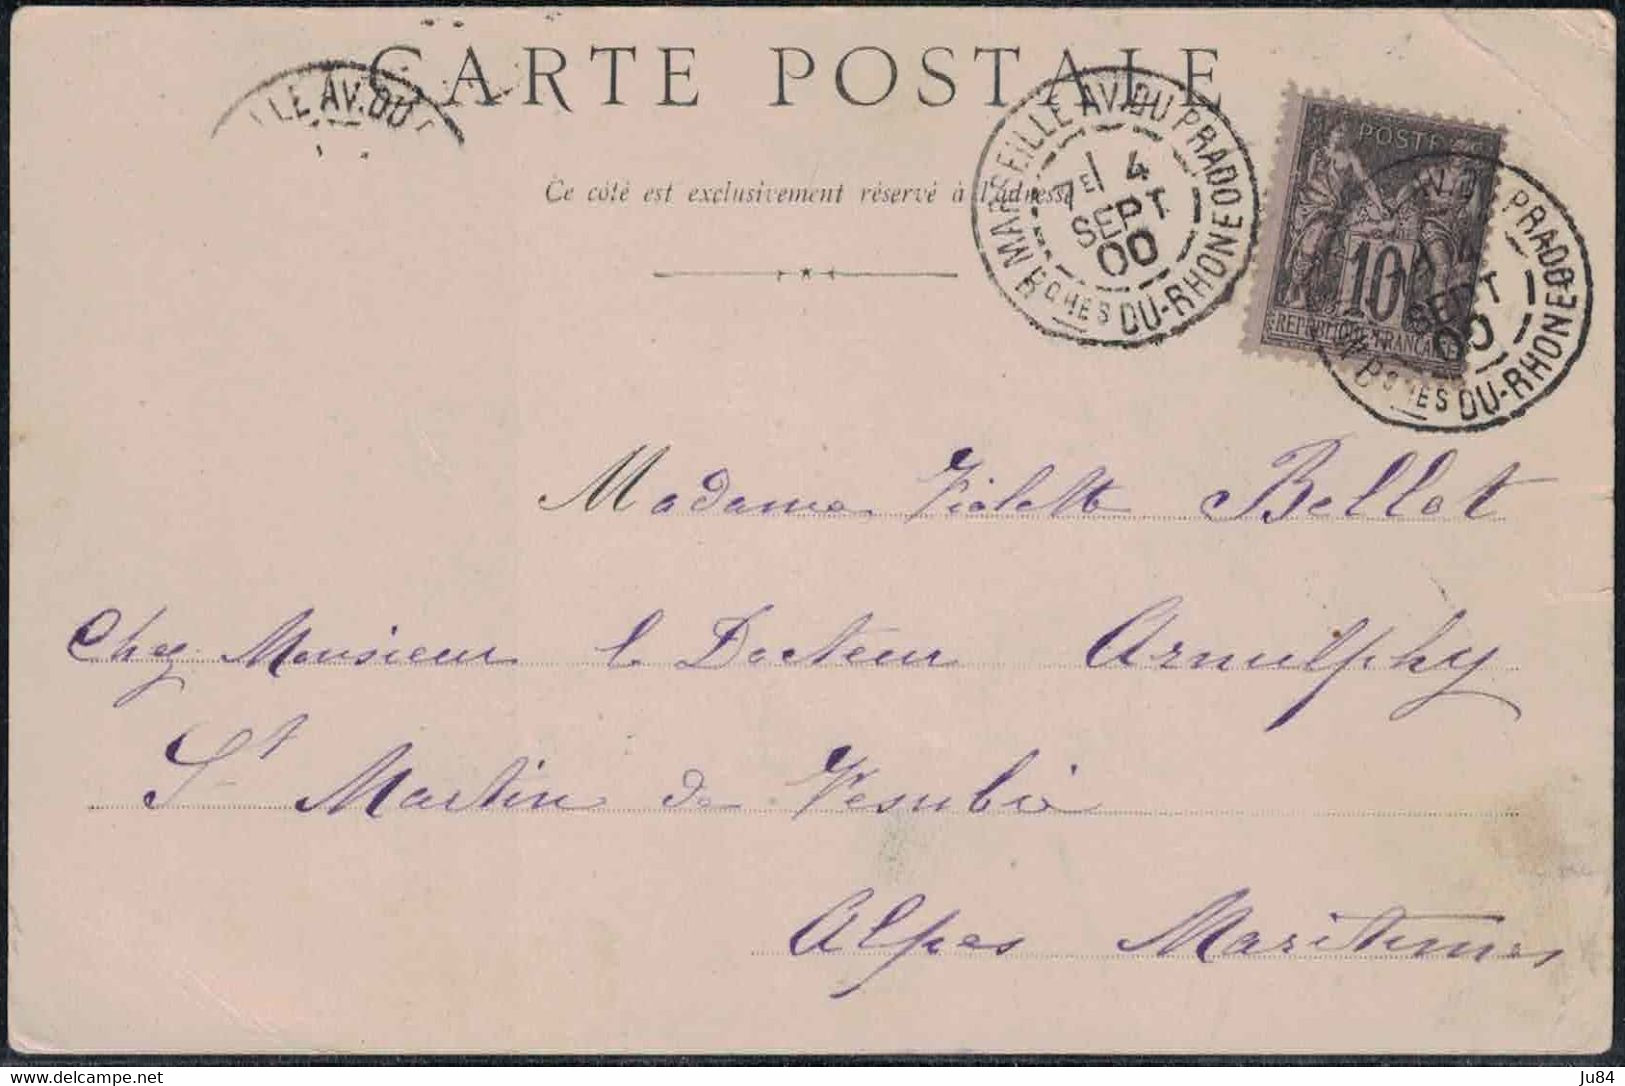 CARTE POSTALE
LLE AV. DU
MARSEILLE AV. DU PRADO
7E 4
SEPT
00
BCHES DU-RHONE
POSTE
10
REPUBLIQUE FRANCAISE
PRADO
SEPT
00
DU-RHONE
Ce côté est exclusivement réservé à l'adresse
Madame Violette Bellot
Chez Monsieur le Docteur Arnulphy
St Martin de Vesubie
Alpes Maritimes
delcampe.net
Ju84